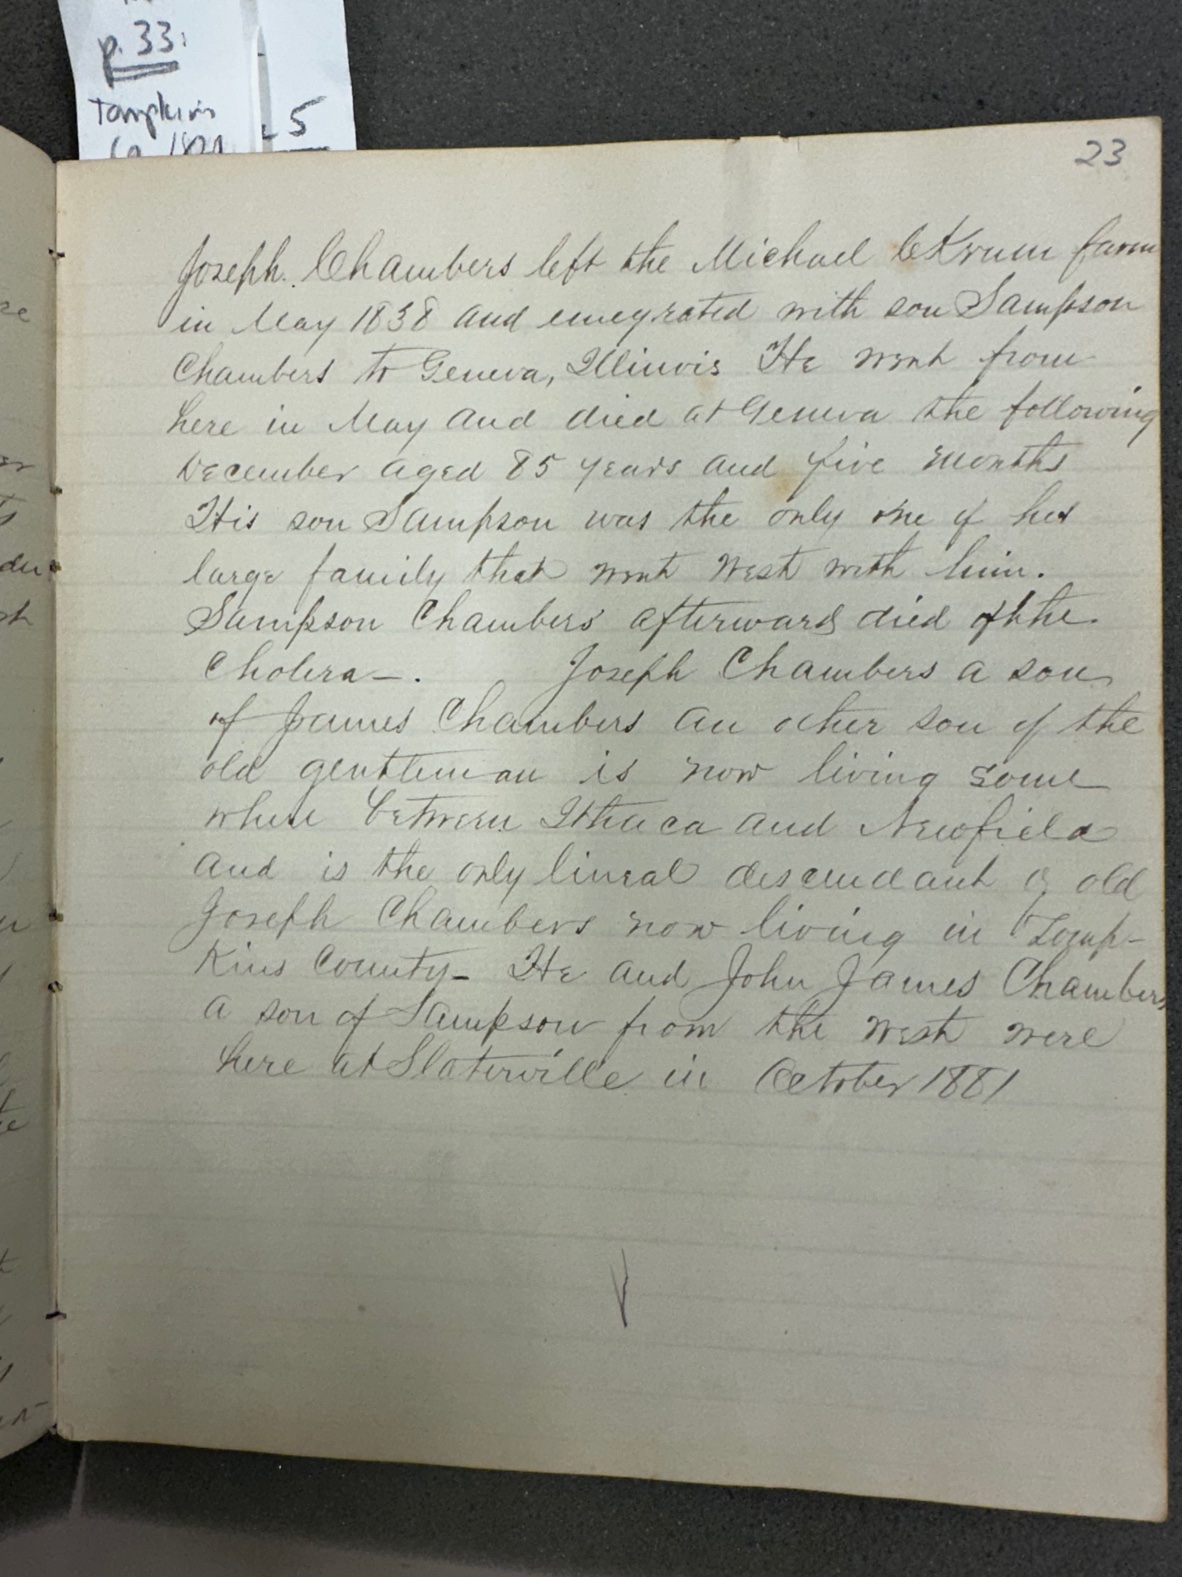 p. 33.
Tompkins
5
23
Joseph. Chambers left the Michael Krum farm
in May 1838 and emegrated with son Sampson
Chambers to Geneva, Illinois He went from
here in May and died at Geneva the following
December aged 85 years and five months
His son Sampson was the only one of his
large family that went West with him.
Sampson Chambers afterwards died of the
Cholera—. Joseph Chambers a son
of James Chambers an other son of the
old gentleman is now living some
where between Ithaca and Newfield
and is the only lineal descendant of old
Joseph Chambers now living in Tomp-
Kins County— He and John James Chambers
a son of Sampson from the West were
here at Slaterville in October 1881